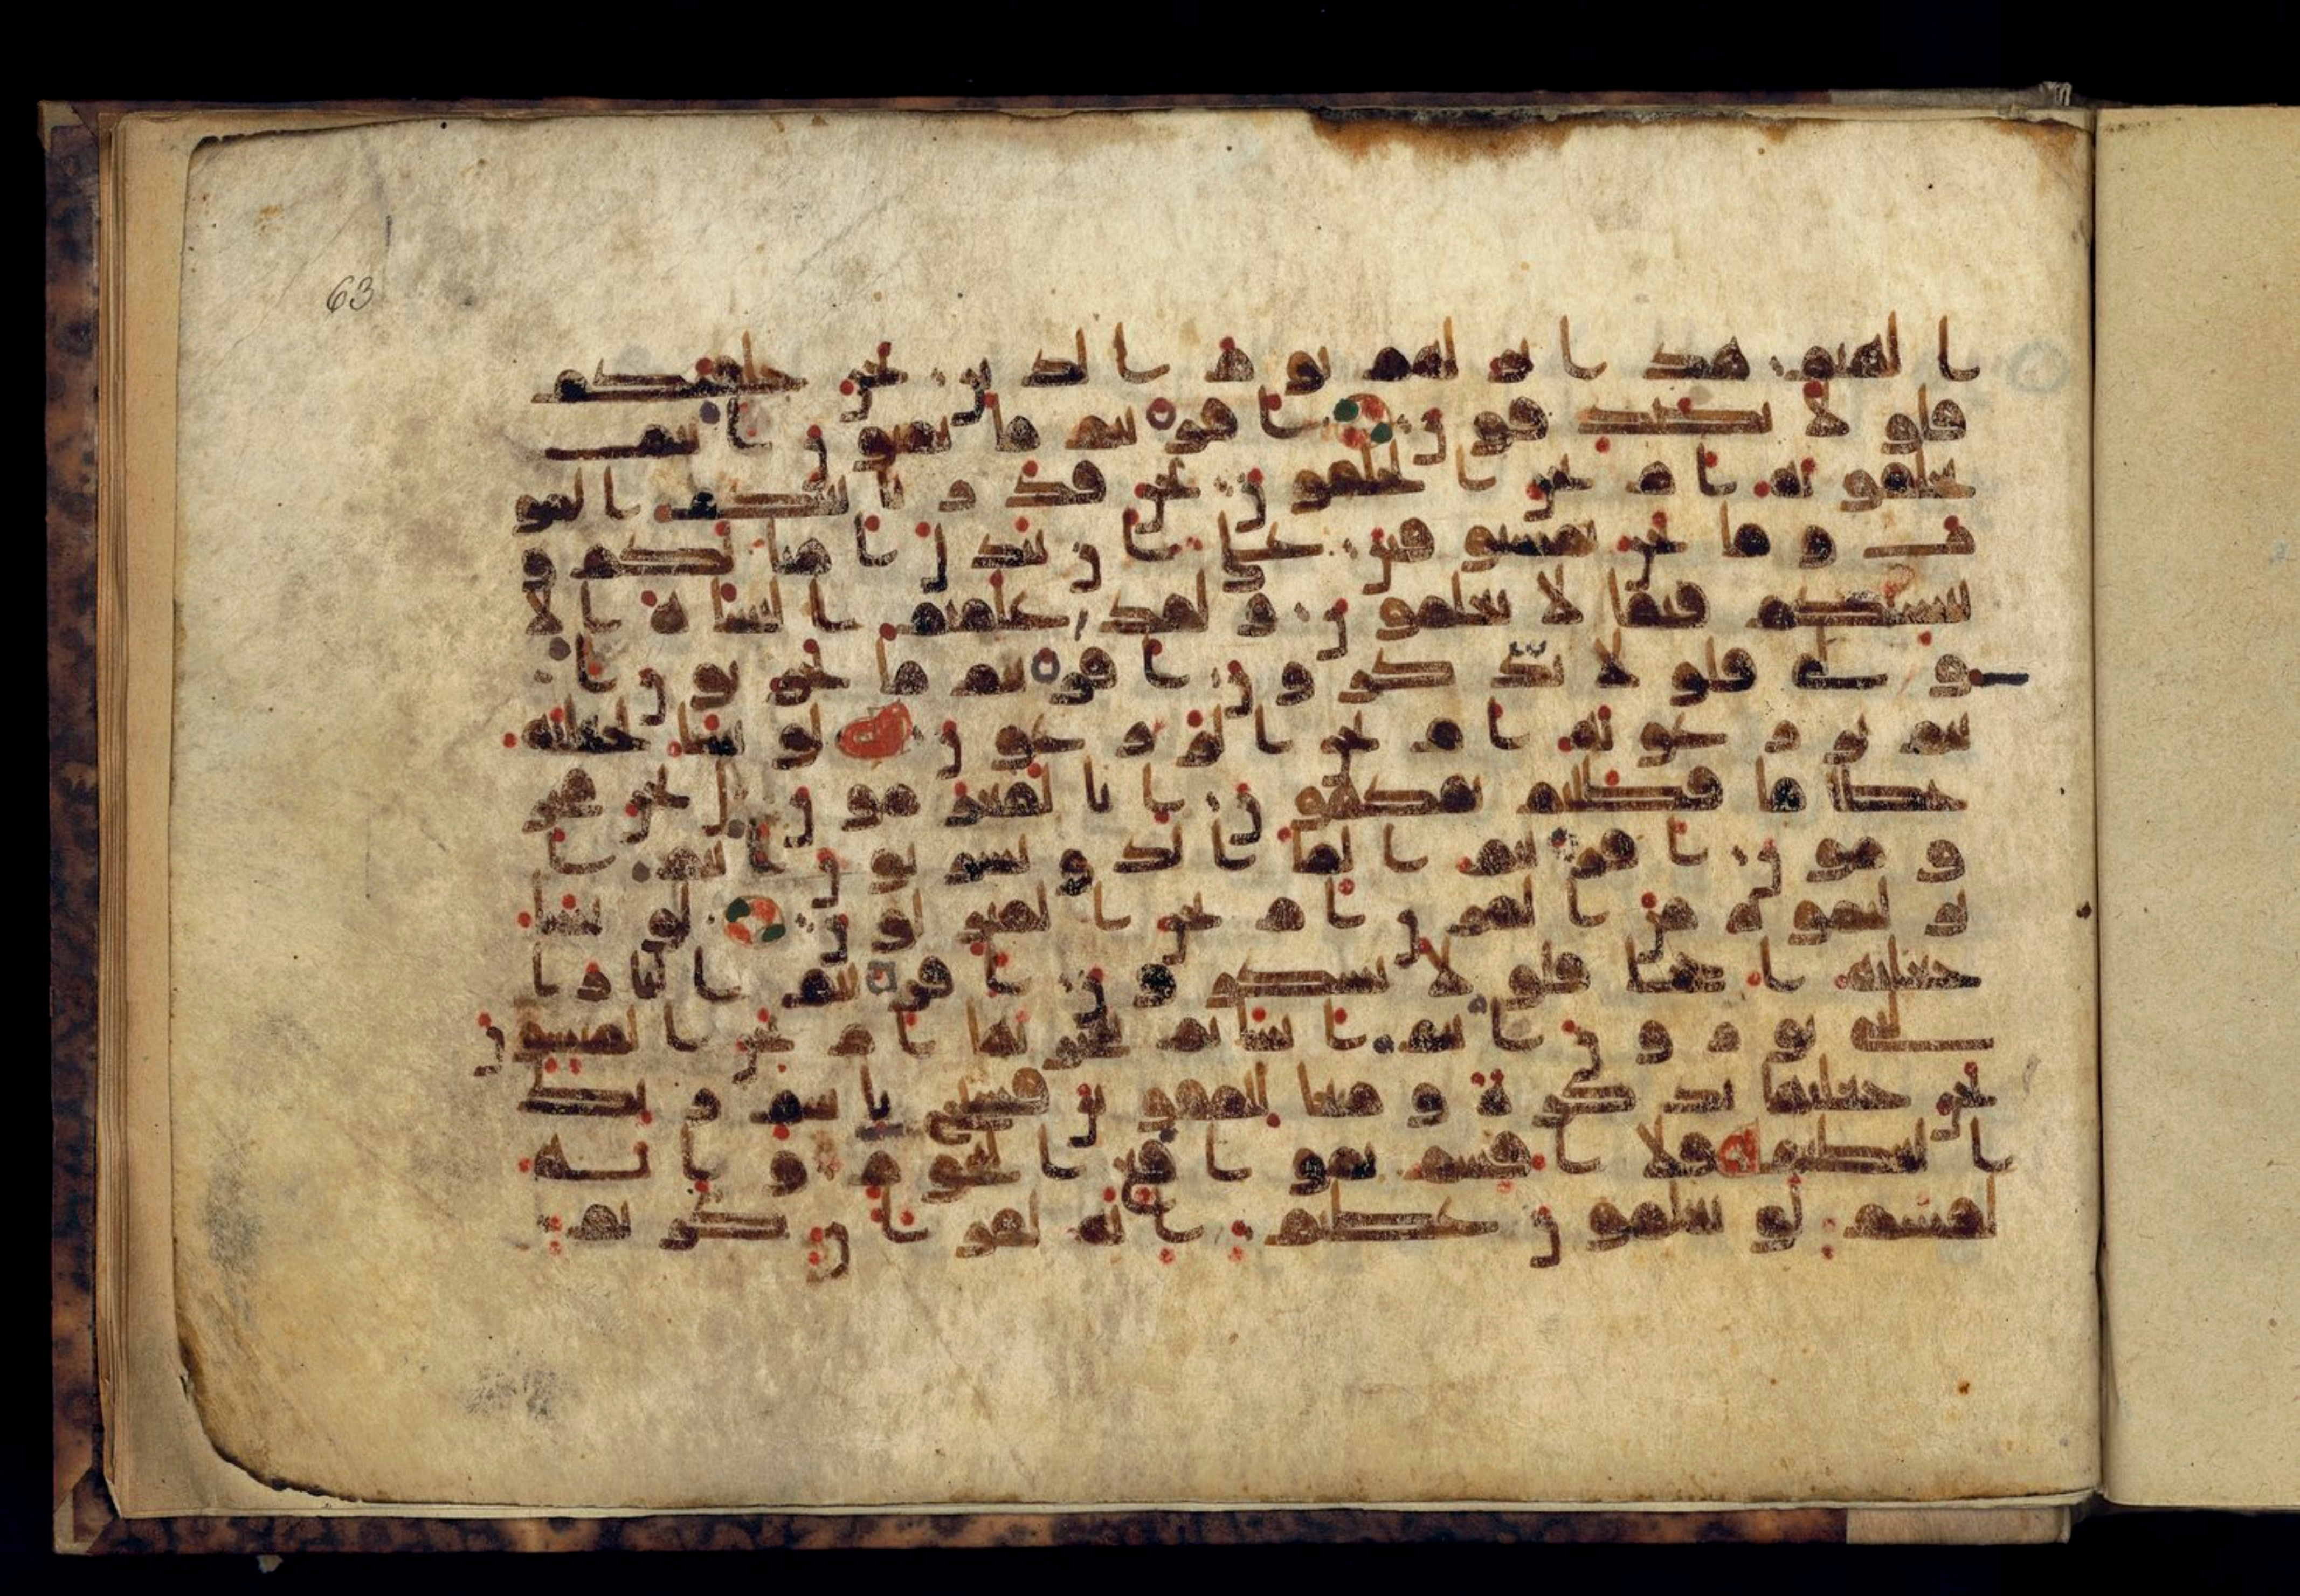 63
ا لهيم هذا نزلهم يوم الدين نحن خلقنكم
فلولا تصدقون افريتم ما تمنون انتم
تخلقونه ام نحن الخلقون نحن قدرنا بينكم المو
ت وما نحن بمسبوقين على ان نبدل امثلكم و
ننشئكم فيما لا تعلمون ولقد علمتم النشاة الا
ولى فلولا تذكرون افريتم ما تحرثون ا
نتم تزرعونه ام نحن الزرعون لو نشا لجعلنه
حطما فظلتم تفكهون انا لمغرمون بل نحن محر
ومون افريتم الما الذى تشربون انتم ا
نزلتموه من المزن ام نحن المنزلون لو نشا
جعلنه اجاجا فلولا تشكرون افريتم النار ا
لتى تورون انتم انشاتم شجرتها ام نحن المنشون
نحن جعلنها تذكرة ومتعا للمقوين فسبح باسم ربك
العظيم فلا اقسم بموقع النجوم وانه
لقسم لو تعلمون عظيم انه لقران كريم